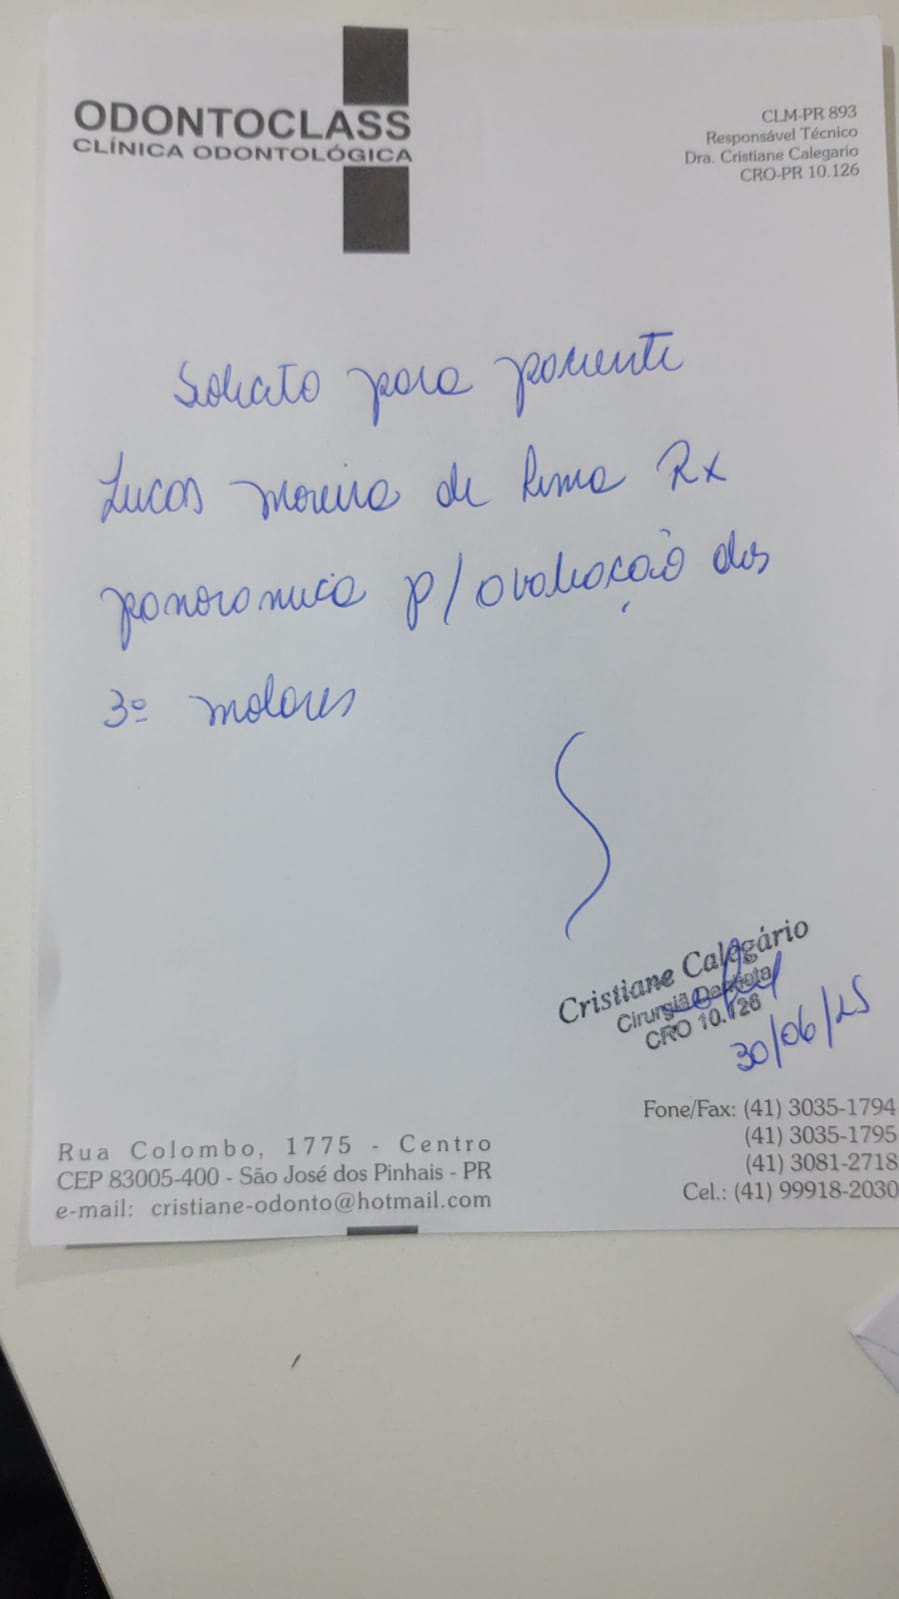 ODONTOCLASS
CLÍNICA ODONTOLÓGICA
CLM-PR 893
Responsável Técnico
Dra. Cristiane Calegario
CRO-PR 10.126
Solicito para paciente
Lucas Moreira de Lima Rx
panoramica p/ avaliação dos
3º molares
Cristiane Calegário
Cirurgiã Dentista
CRO 10.126
30/06/25
Rua Colombo, 1775 - Centro
CEP 83005-400 - São José dos Pinhais - PR
e-mail: cristiane-odonto@hotmail.com
Fone/Fax: (41) 3035-1794
(41) 3035-1795
(41) 3081-2718
Cel.: (41) 99918-2030